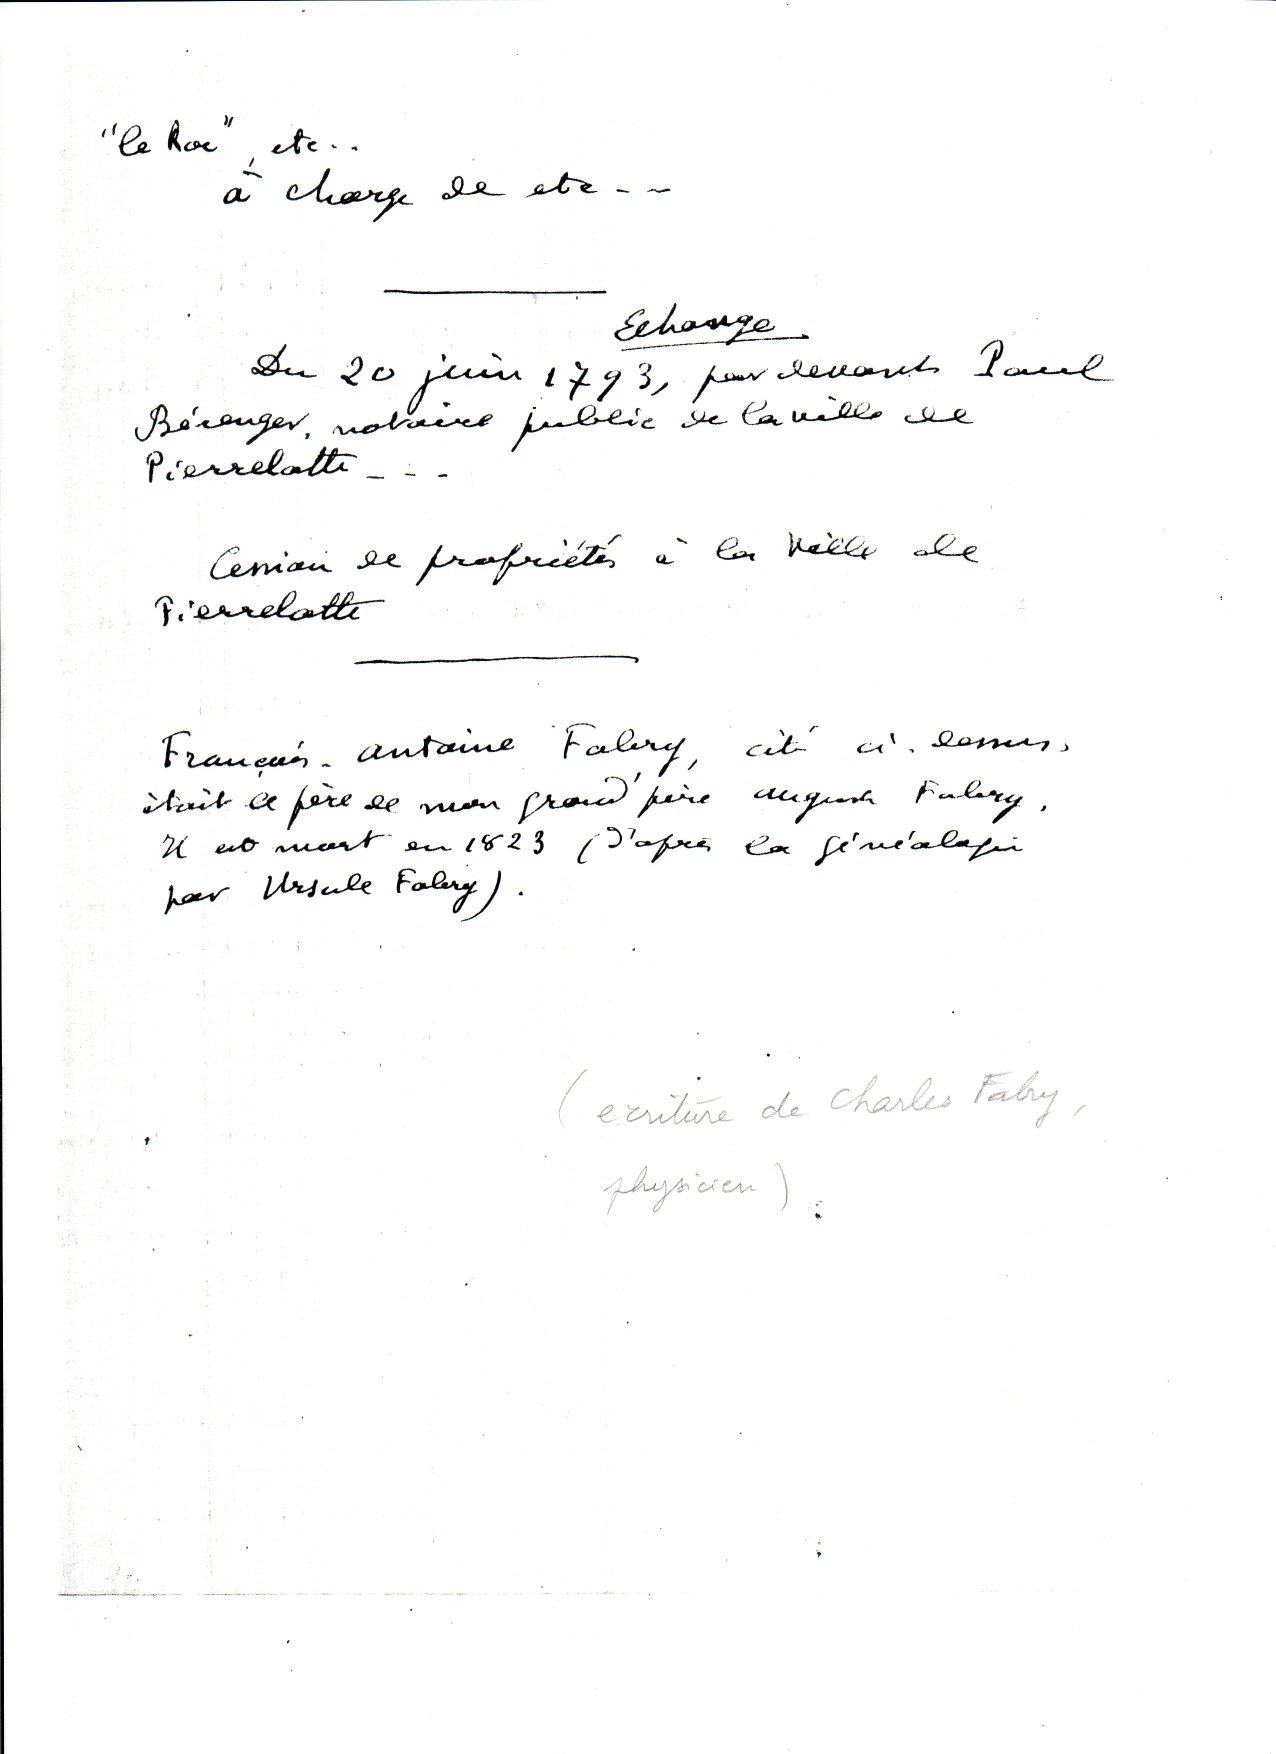 "le Roc", etc..
à charge de etc - -
Echange
Du 20 juin 1793, par devant Paul
Bérenger, notaire public de la ville de
Pierrelatte - - -
Cession de propriétés à la Ville de
Pierrelatte
François-Antoine Fabry, cité ci-dessus,
était le père de mon grand'père Auguste Fabry.
Il est mort en 1823 (d'après la généalogie
par Ursule Fabry).
(ecriture de Charles Fabry,
physicien)